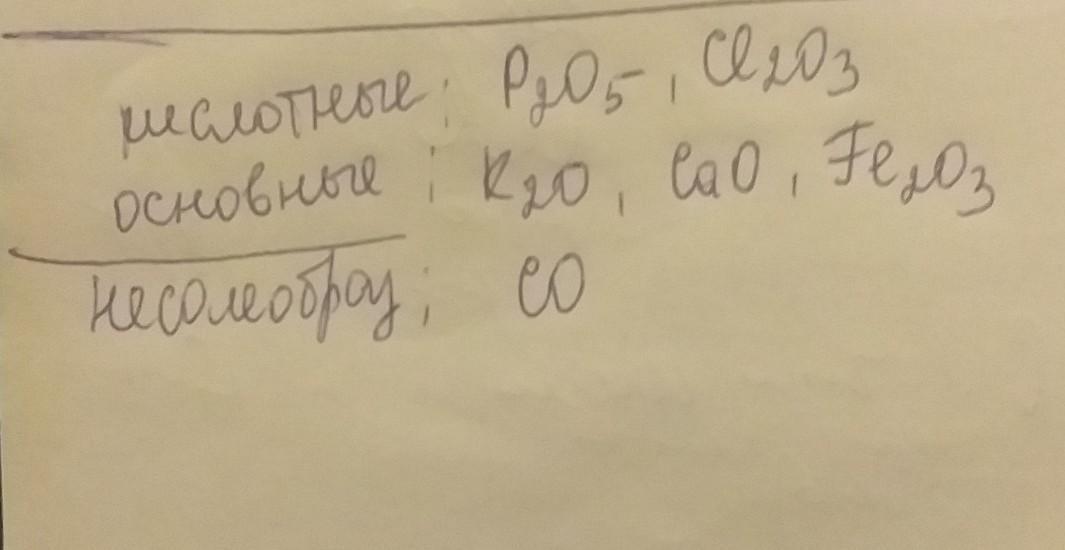 кислотные: P₂O₅, Cl₂O₃
основные: K₂O, CaO, Fe₂O₃
несолеобраз: CO